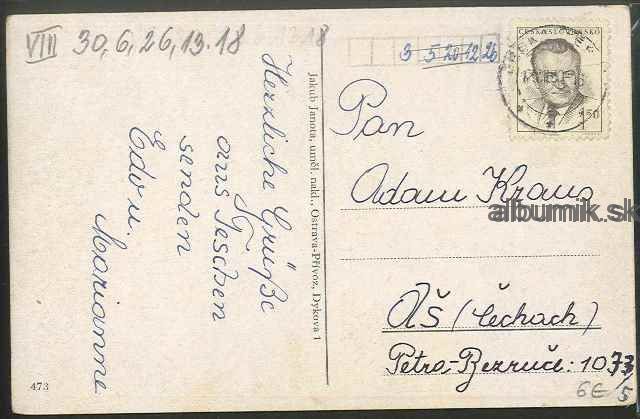 VIII 30,6,26,13.18
18
3 5 20 12 26
Herzliche Grüße
aus Teschen
T.
senden
Edo u.
Marianne
Jakub Janota, uměl. nakl., Ostrava-Přívoz, Dykova 1
ČESKOSLOVENSKO
1.50
Pan
Adam Kraus
albumik.sk
Aš (Čechach)
Petra-Bezruče: 1073/5
6€
473